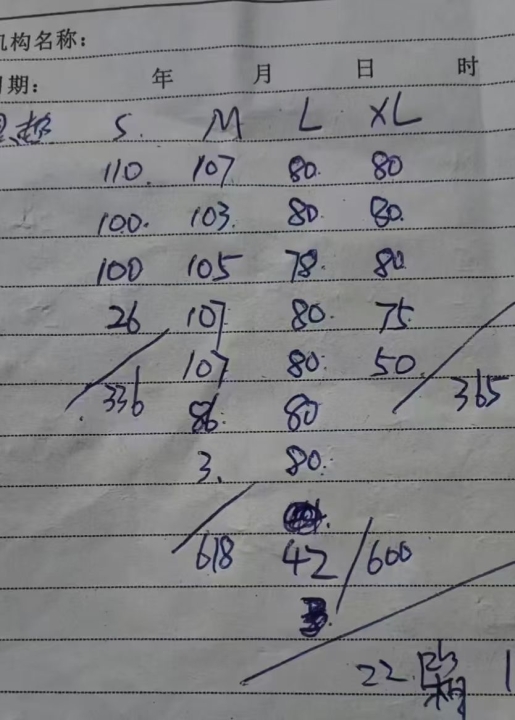 机构名称:
日期: 年 月 日 时
S. M L XL
110. 107 80. 80
100. 103. 80. 80.
100 105 78. 80
26 107 80. 75
107 80. 50.
336 86. 80 365
3. 80.
618 42 600
22.